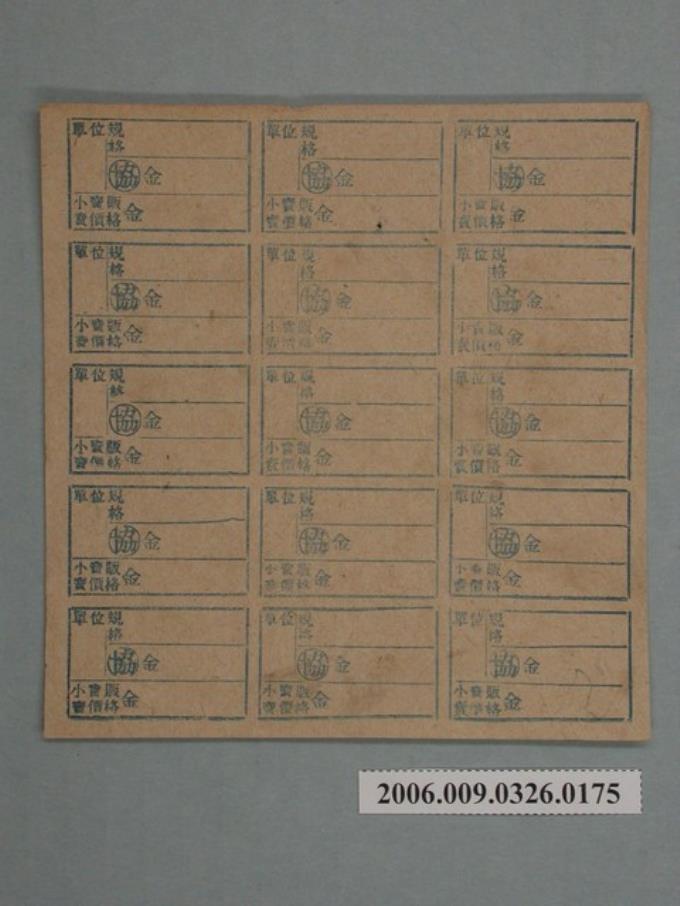 單位 規格
協 金
小賣販賣價格 金
單位 規格
協 金
小賣販賣價格 金
單位 規格
協 金
小賣販賣價格 金
單位 規格
協 金
小賣販賣價格 金
單位 規格
協 金
小賣販賣價格 金
單位 規格
協 金
小賣販賣價格 金
單位 規格
協 金
小賣販賣價格 金
單位 規格
協 金
小賣販賣價格 金
單位 規格
協 金
小賣販賣價格 金
單位 規格
協 金
小賣販賣價格 金
單位 規格
協 金
小賣販賣價格 金
單位 規格
協 金
小賣販賣價格 金
單位 規格
協 金
小賣販賣價格 金
單位 規格
協 金
小賣販賣價格 金
單位 規格
協 金
小賣販賣價格 金
2006.009.0326.0175